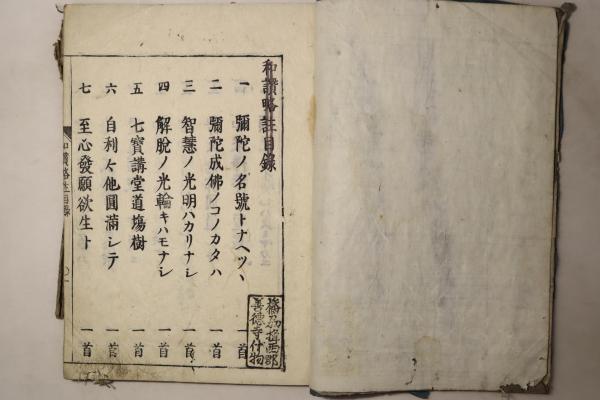 和讃略註目錄
一 彌陀ノ名號トナヘツヽ 一首
二 彌陀成佛ノコノカタハ 一首
三 智慧ノ光明ハカリナシ 一首
四 解脫ノ光輪キハモナシ 一首
五 七寶講堂道塲樹 一首
六 自利々他圓滿シテ 一首
七 至心發願欲生ト 一首
揖西郡
善德寺什物
和讃略註目錄